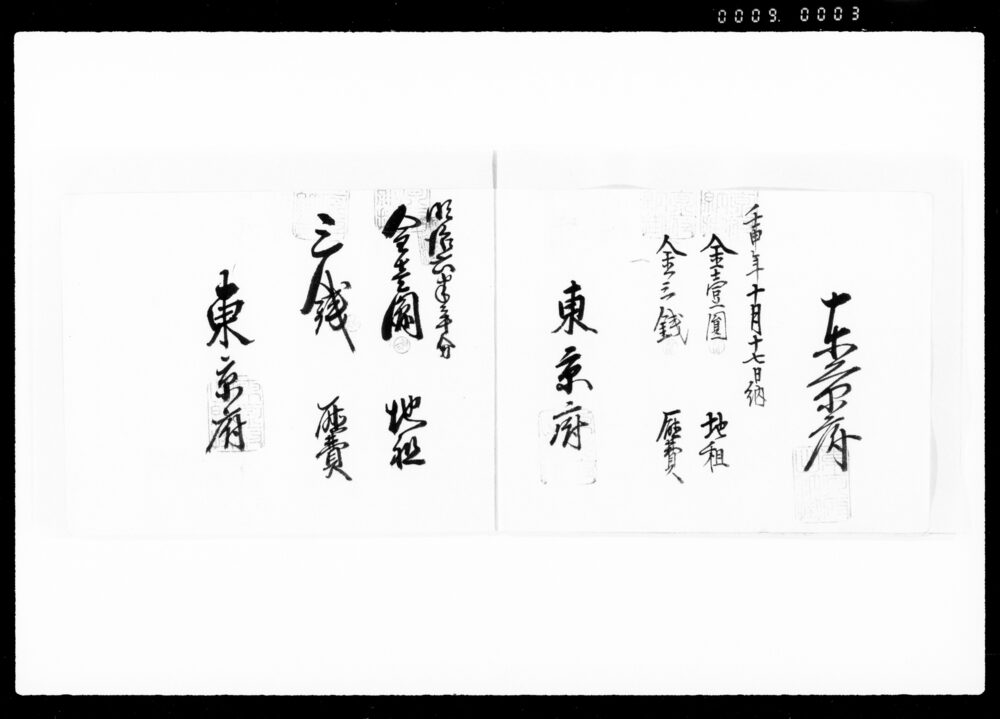 0009. 0003
東京府
壬申年十月十七日納
金壹圓 地租
金三銭 区費
東京府
明治六年分
金壱圓 地租
三銭 区費
東京府